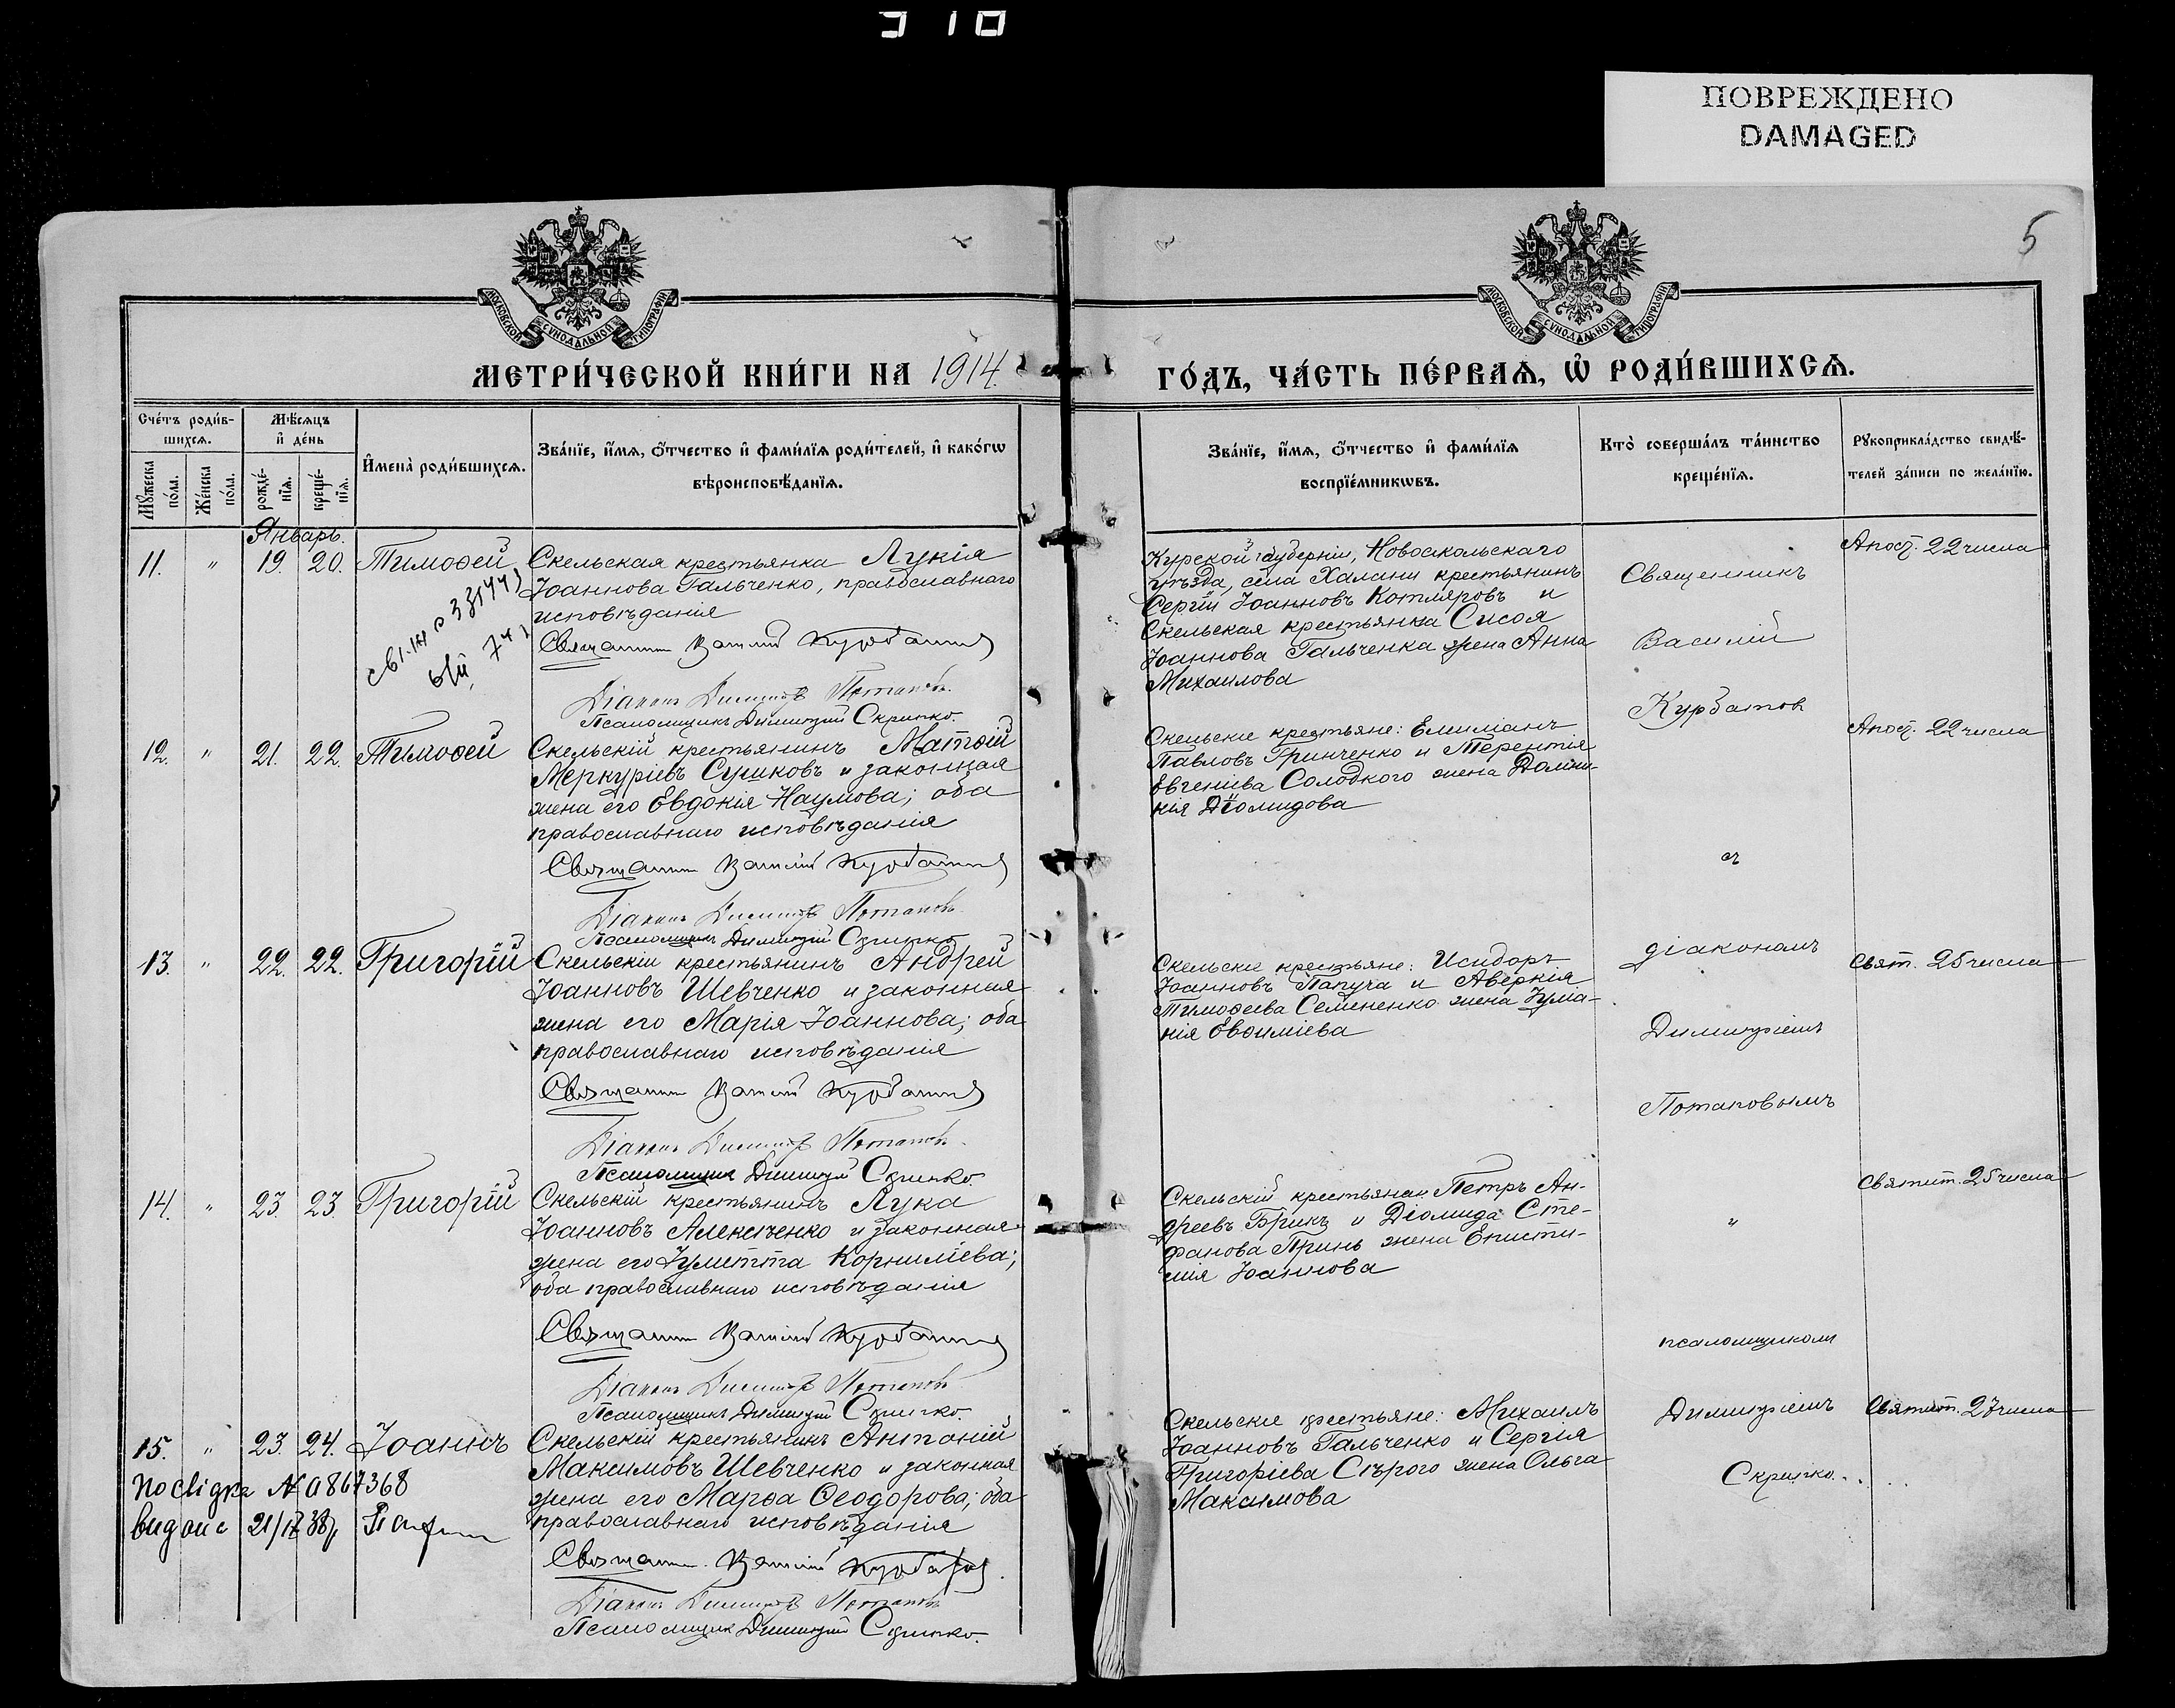 310
ПОВРЕЖДЕНО
DAMAGED
5
МОСКОВСКОЙ СѴНОДАЛЬНОЙ ТИПОГРАФІИ
МОСКОВСКОЙ СѴНОДАЛЬНОЙ ТИПОГРАФІИ
МЕТРИ́ЧЕСКОЙ КНИ́ГИ НА 1914.
ГО́ДЪ, ЧА́СТЬ ПЕ́РВАѦ, Ѡ҆ РОДИ́ВШИХСѦ.
Сче́тъ роди́в-
шихсѧ.
Мꙋ́жеска
по́ла.
Же́нска
по́ла.
Мѣ́сѧцъ
и҆ де́нь
рожде́-
нїѧ.
креще́-
нїѧ.
И҆мена̀ роди́вшихсѧ.
Зва́нїе, и҆́мѧ, ѻ҆́тчество и҆ фами́лїѧ роди́телей, и҆ како́гѡ
вѣроисповѣ́данїѧ.
Зва́нїе, и҆́мѧ, ѻ҆́тчество и҆ фами́лїѧ
воспрїе́мникѡвъ.
Кто̀ соверша́лъ та́инство
креще́нїѧ.
Рꙋкоприкла́дство свидѣ́-
телей за́писи по жела́нїю.
Январь.
11. " 19. 20. Тимоѳей
Скельская крестьянка Лукія
Іоаннова Гальченко, православнаго
исповѣданія
Священникъ Василій Курбатовъ
Діаконъ Димитрій Потаповъ.
Псаломщикъ Димитрій Скрипко.
Курской губерніи, Новооскольскаго
уѣзда, села Халани крестьянинъ
Сергій Іоанновъ Котляровъ и
Скельская крестьянка Сисоя
Іоаннова Гальченка жена Анна
Михаилова
Священникъ
Василій
Курбатов
Апост. 22 числа
12. " 21. 22. Тимоѳей
Скельскій крестьянинъ Матѳій
Меркуріевъ Сушковъ и законная
жена его Евдокія Наумова; оба
православнаго исповѣданія
Священникъ Василій Курбатовъ
Діаконъ Димитрій Потаповъ.
Псаломщикъ Димитрій Скрипко
Скельскіе крестьяне: Емиліанъ
Павловъ Гринченко и Терентія
Евгеніева Солодкого жена Домни-
кія Діомидова
съ
Апост. 22 числа
13. " 22. 22. Григорій
Скельскій крестьянинъ Андрей
Іоанновъ Шевченко и законная
жена его Марія Іоаннова; оба
православнаго исповѣданія
Священникъ Василій Курбатовъ
Діаконъ Димитрій Потаповъ.
Псаломщикъ Димитрій Скрипко.
Скельскіе крестьяне: Исидоръ
Іоанновъ Папуча и Аверкія
Тимоѳеева Семененко жена Іулiа-
нія Евѳиміева
діакономъ
Димитріемъ
Потаповымъ
Свят. 25 числа
14. " 23. 23. Григорій
Скельскій крестьянинъ Лука
Іоанновъ Алексѣенко и законная
жена его Іулитта Корниліева;
оба православнаго исповѣданія
Священникъ Василій Курбатовъ
Діаконъ Димитрій Потаповъ
Псаломщикъ Димитрій Скрипко.
Скельскій крестьянин Петръ Ан-
дреевъ Брикъ и Діомида Сте-
фанова Принь жена Еписти-
мія Іоаннова
"
псаломщикомъ
Святит. 25 числа
15. " 23. 24. Іоаннъ
Скельскій крестьянинъ Антоній
Максимовъ Шевченко и законная
жена его Марѳа Ѳеодорова; оба
православнаго исповѣданія
Священникъ Василій Курбатовъ.
Діаконъ Димитрій Потаповъ
Псаломщикъ Димитрій Скрипко.
Скельскіе крестьяне: Михаилъ
Іоанновъ Гальченко и Сергія
Григоріева Сѣрого жена Ольга
Максимова
Димитріемъ
Скрипко.
Святит. 27 числа
№ 0867368